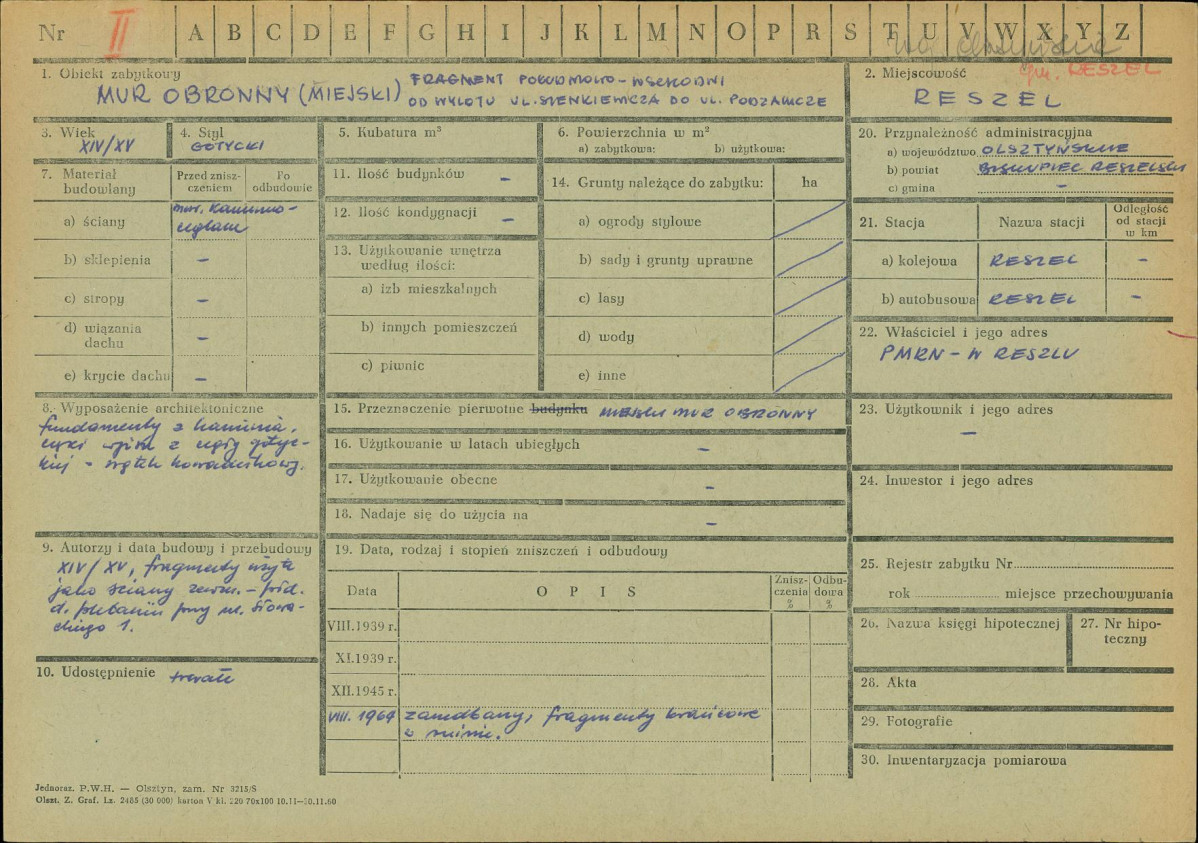 Nr II A B C D E F G H I J K L M N O P R S T U V W X Y Z
woj.
gm. RESZEL
1. Obiekt zabytkowy
MUR OBRONNY (MIEJSKI) FRAGMENT POŁUDNIOWO-WSCHODNI
OD WYLOTU UL. SIENKIEWICZA DO UL. PODZAMCZE
2. Miejscowość
RESZEL
3. Wiek
XIV/XV
4. Styl
GOTYCKI
5. Kubatura m³
6. Powierzchnia w m²
a) zabytkowa: b) użytkowa:
20. Przynależność administracyjna
a) województwo OLSZTYŃSKIE
b) powiat BISKUPIEC RESZELSKI
c) gmina –
7. Materiał budowlany
Przed zniszczeniem
Po odbudowie
a) ściany
mur. kamienno-
ceglane
b) sklepienia –
c) stropy –
d) wiązania dachu –
e) krycie dachu –
11. Ilość budynków –
12. Ilość kondygnacji –
13. Użytkowanie wnętrza
według ilości:
a) izb mieszkalnych
b) innych pomieszczeń
c) piwnic
14. Grunty należące do zabytku: ha
a) ogrody stylowe
b) sady i grunty uprawne
c) lasy
d) wody
e) inne
21. Stacja Nazwa stacji Odległość od stacji w km
a) kolejowa RESZEL –
b) autobusowa RESZEL –
22. Właściciel i jego adres
PMRN – W RESZLU
8. Wyposażenie architektoniczne
fundamenty z kamienia,
części wyższe z cegły gotyc-
kiej – wątek kowadełkowy.
15. Przeznaczenie pierwotne budynku MIEJSKI MUR OBRONNY
16. Użytkowanie w latach ubiegłych –
17. Użytkowanie obecne –
18. Nadaje się do użycia na –
23. Użytkownik i jego adres
–
24. Inwestor i jego adres
9. Autorzy i data budowy i przebudowy
XIV/XV, fragmenty użyte
jako ściany zewn. –
d. plebanii przy ul. Słowa-
ckiego 1.
10. Udostępnienie trwałe
19. Data, rodzaj i stopień zniszczeń i odbudowy
Data OPIS Zniszczenia % Odbudowa %
VIII.1939 r.
XI.1939 r.
XII.1945 r.
VIII. 1964 zaniedbany, fragmenty końcowe
w ruinie.
25. Rejestr zabytku Nr
rok miejsce przechowywania
26. Nazwa księgi hipotecznej
27. Nr hipoteczny
28. Akta
29. Fotografie
30. Inwentaryzacja pomiarowa
Jednoraz. P.W.H. — Olsztyn, zam. Nr 3215/S
Olszt. Z. Graf. Lz. 2485 (30 000) karton V kl. 220 70x100 10.11—30.11.60